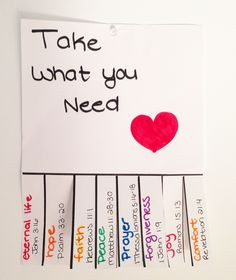 Take
What you
Need
eternal life
John 3:16
hope
Psalm 33:20
faith
Hebrews 11:1
Peace
Matthew 11:28-30
Prayer
1 Thessalonians 5:16-18
forgiveness
1 John 1:9
Joy
Romans 15:13
Comfort
Revelation 21:4